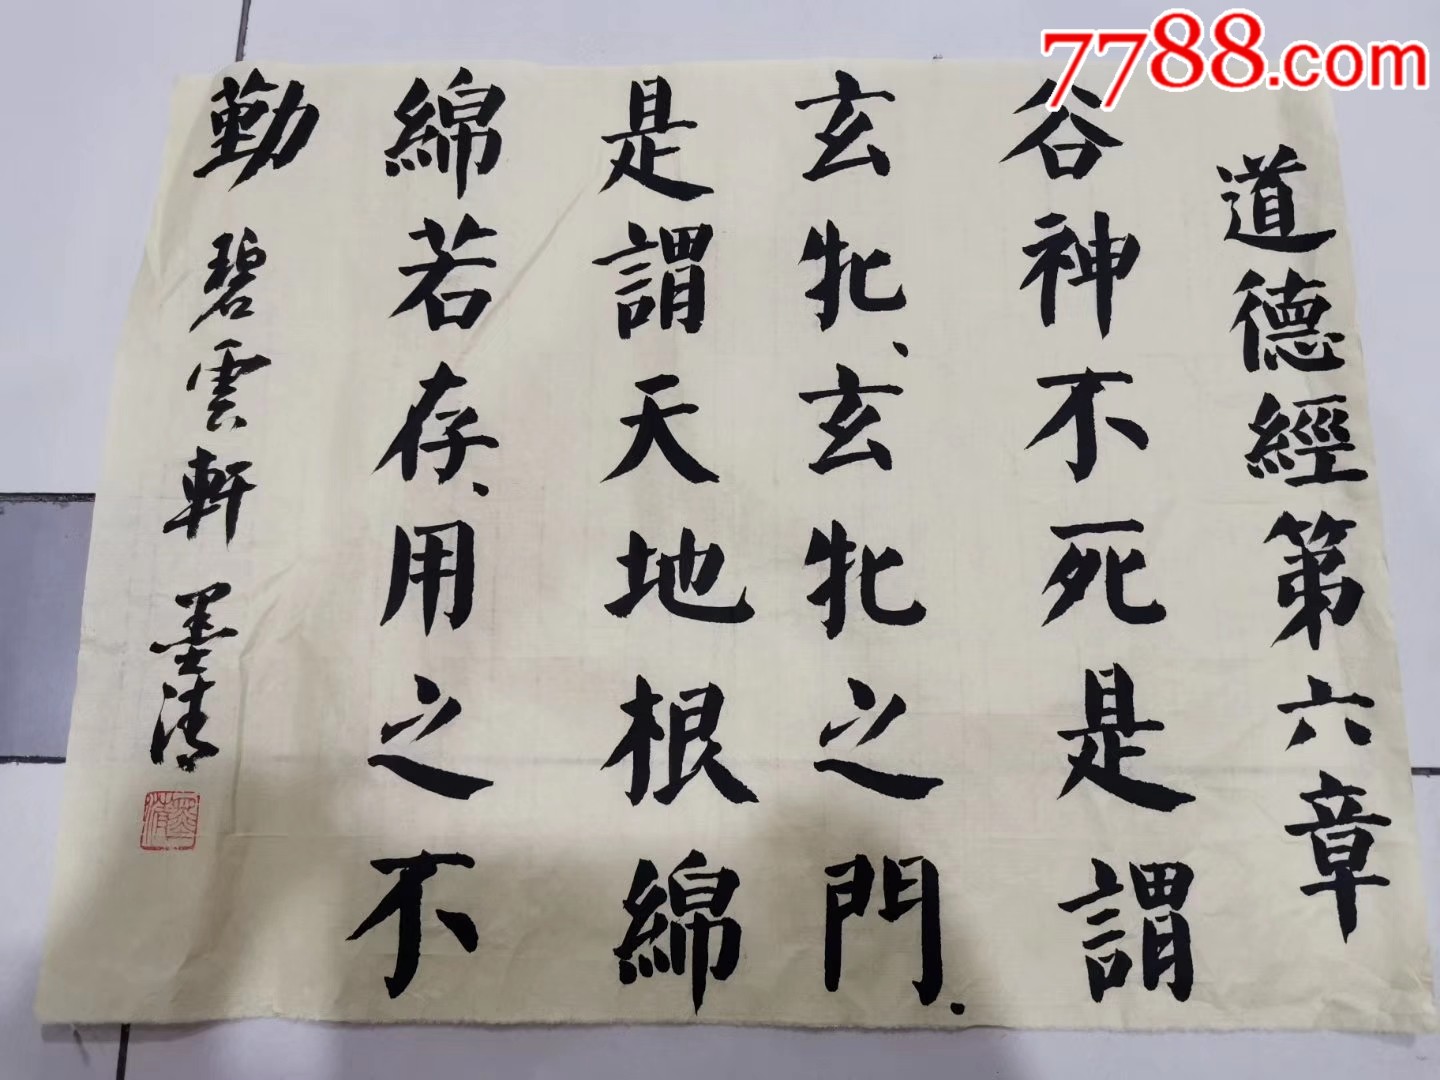 7788.com
道德經第六章
谷神不死是謂
玄牝、玄牝之門.
是謂天地根綿
綿若存、用之不
勤 碧雲軒 墨清